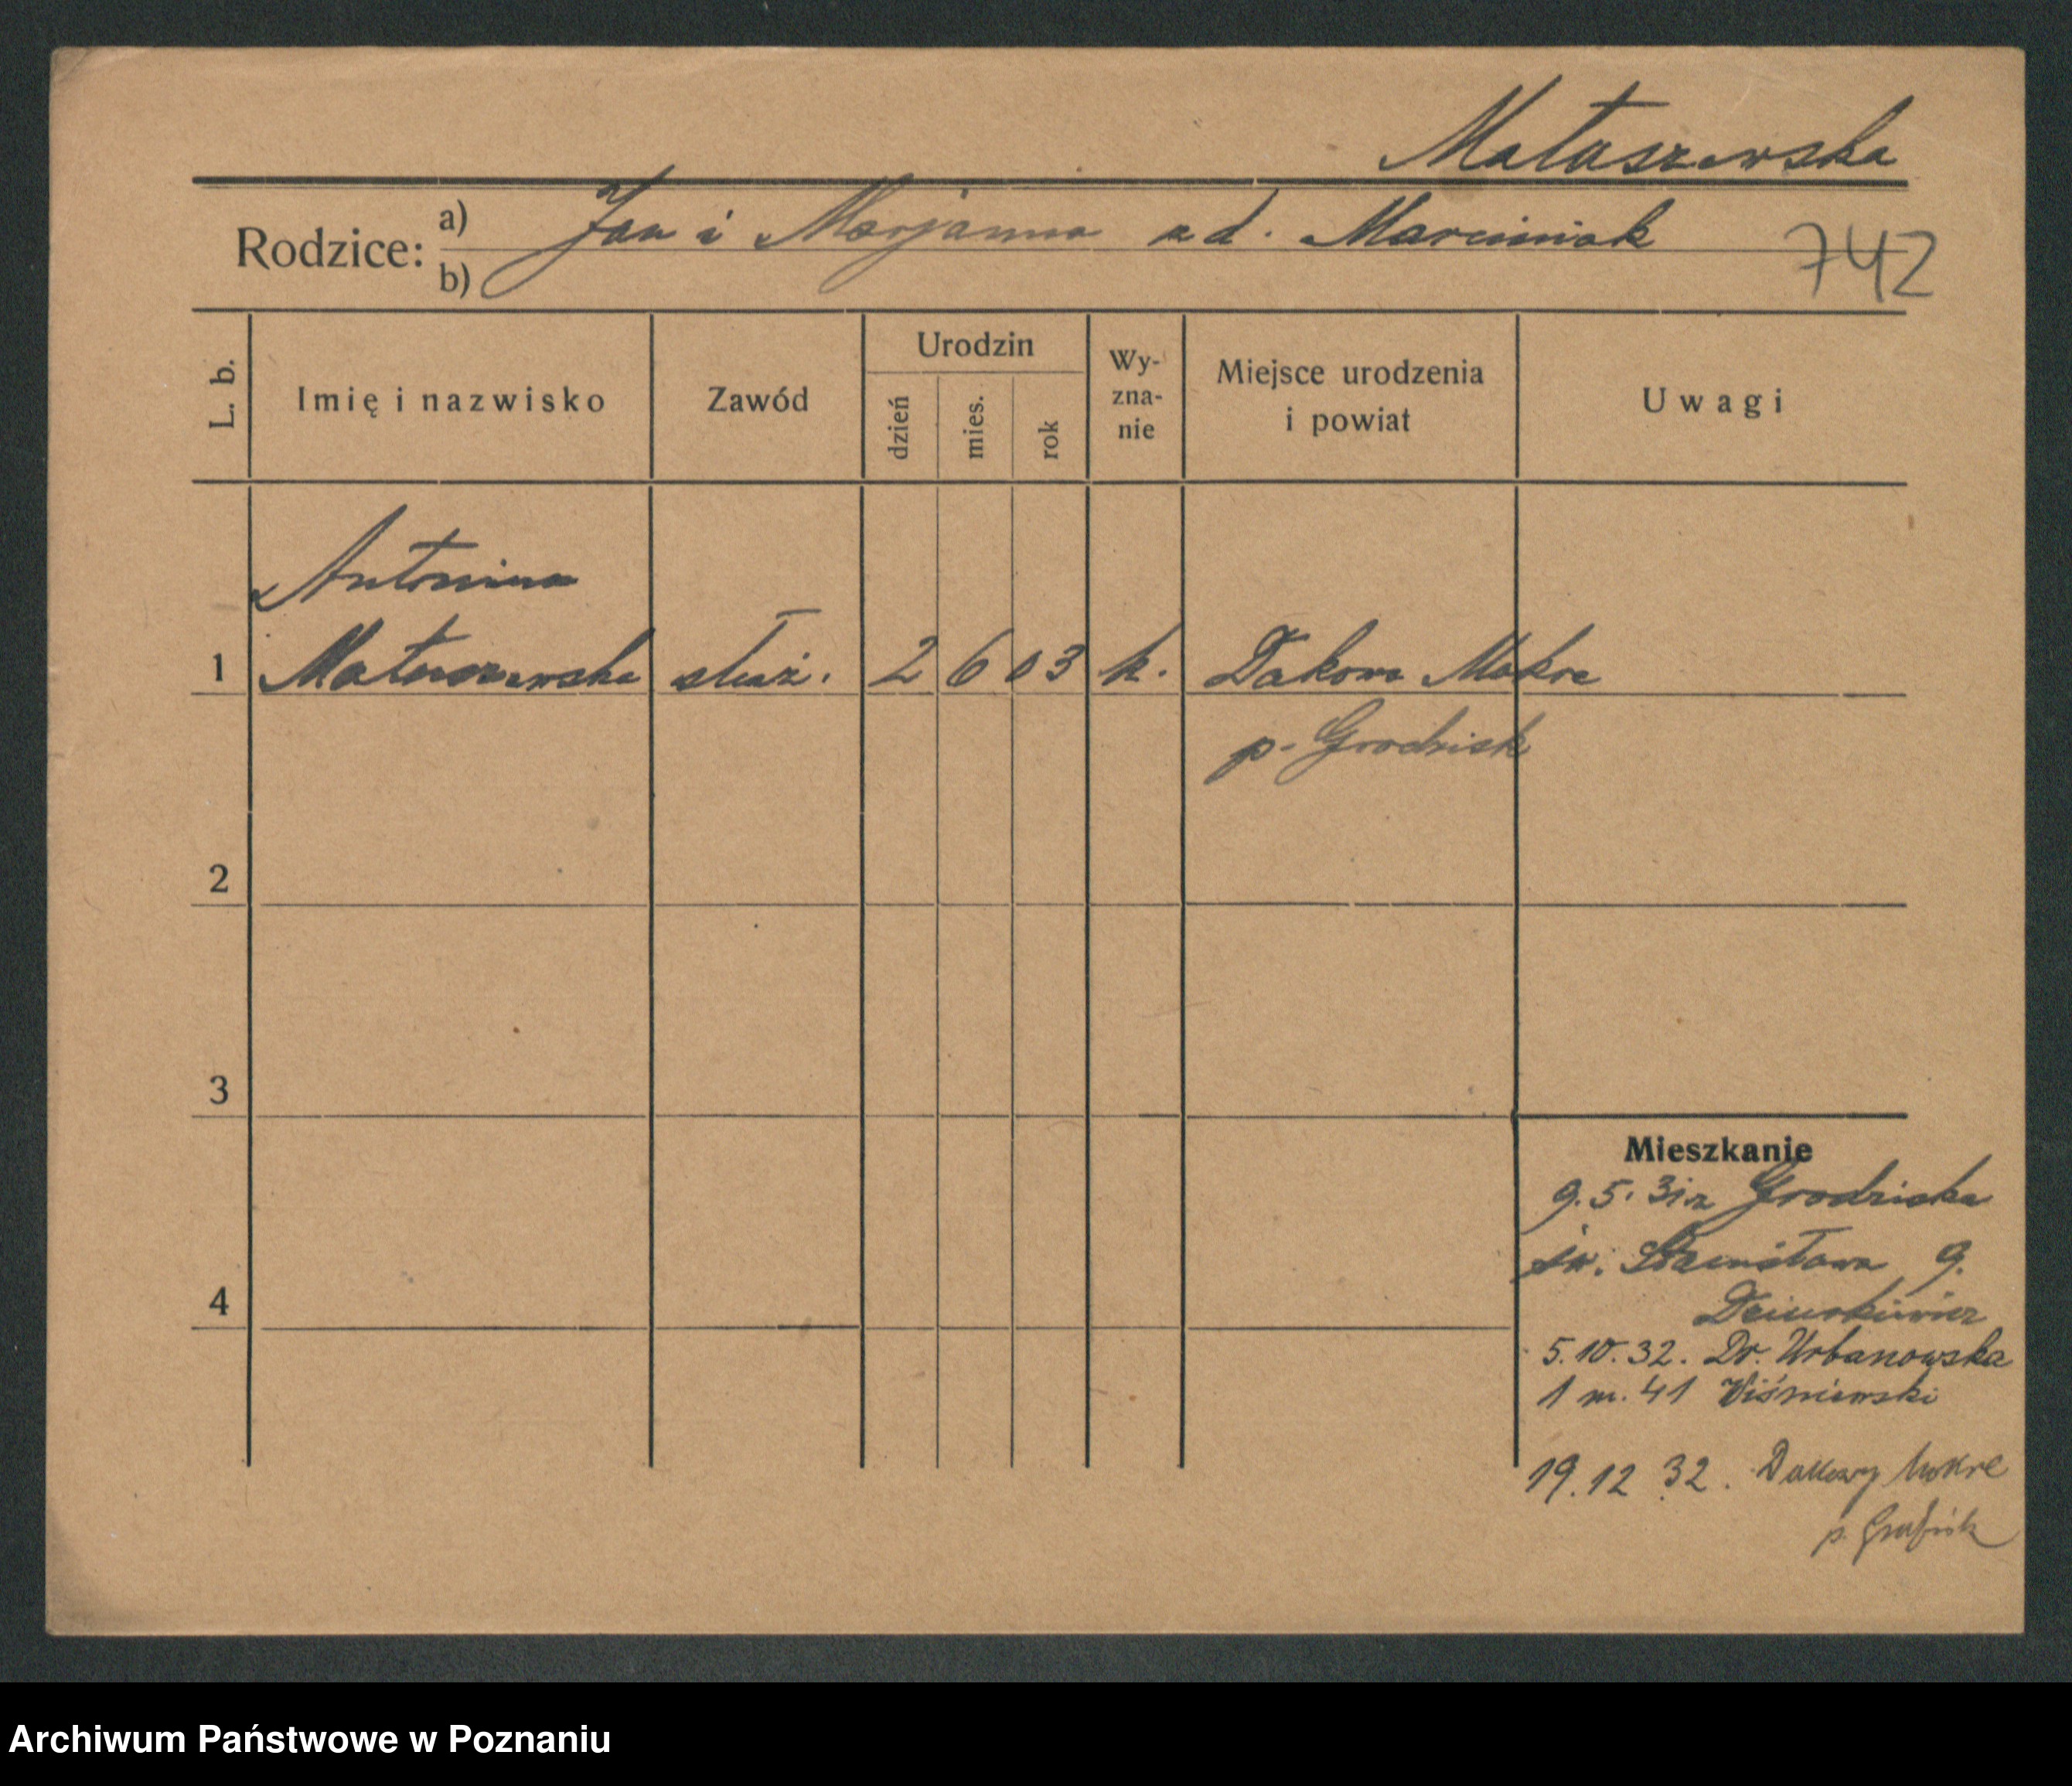 Matuszewska
Rodzice: a) Jan i Marjanna z d. Marciniak
b)
742
L. b. Imię i nazwisko Zawód Urodzin dzień mies. rok Wy-zna-nie Miejsce urodzenia i powiat Uwagi
Antonina
1 Matuszewska służ. 2 6 03 k. Dakowy Mokre
p. Grodzisk
2
3
4
Mieszkanie
9.5. 31 z Grodziska
św. Stanisława 9.
5.10.32. Dr. Urbanowska
1 m. 41 Wiśniewski
19.12 32. Dakowy Mokre
p. Grodzisk
Archiwum Państwowe w Poznaniu